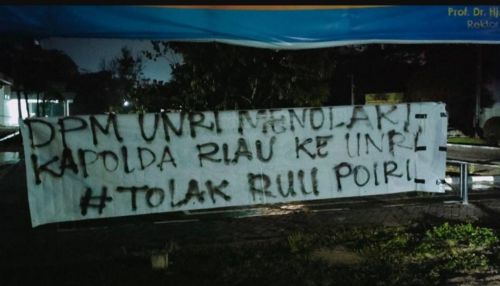 Prof. Dr. Hj
Rektor
DPM UNRI MENOLAK!
KAPOLDA RIAU KE UNRI
#TOLAK RUU POLRI